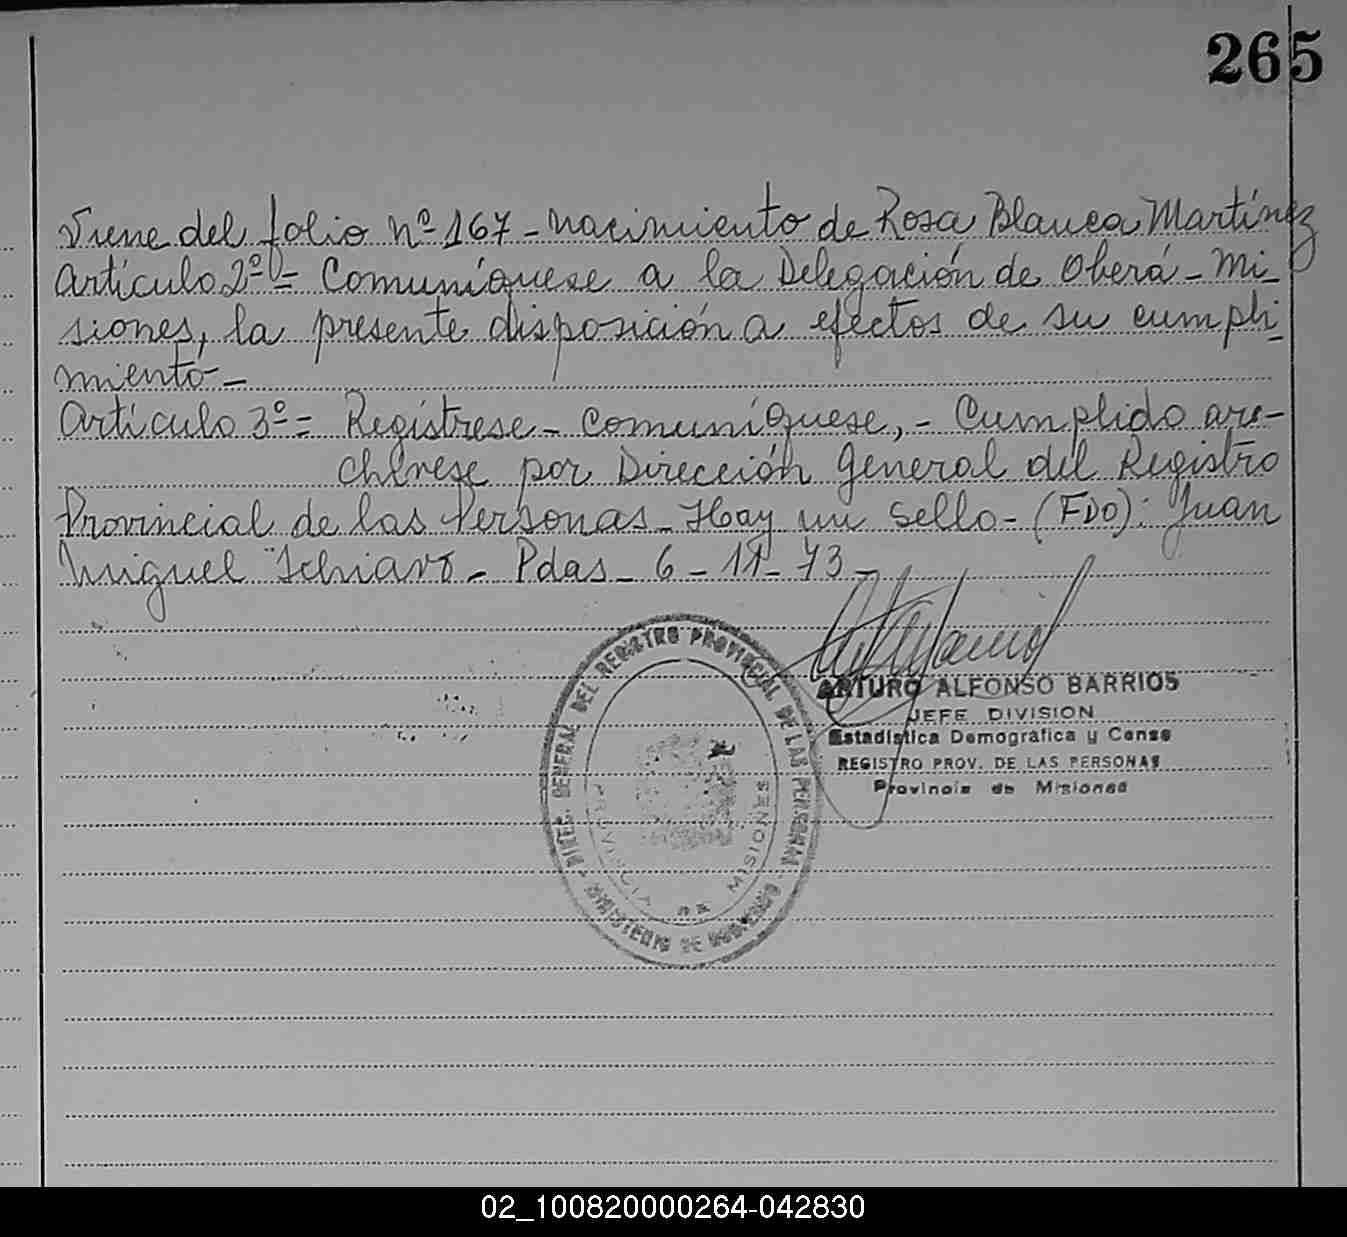 265
Viene del folio Nº 167 - Nacimiento de Rosa Blanca Martínez
Artículo 2º = Comuníquese a la Delegación de Oberá - Mi-
siones, la presente disposición a efectos de su cumpli-
miento -
Artículo 3º = Regístrese - Comuníquese, - Cumplido are-
chívese por Dirección General del Registro
Provincial de las Personas - Hay un sello - (FDO): Juan
Miguel Schiavo - Pdas - 6 - 11 - 73 -
ARTURO ALFONSO BARRIOS
JEFE DIVISION
Estadística Demográfica y Censo
REGISTRO PROV. DE LAS PERSONAS
Provincia de Misiones
DIREC. GENERAL DEL REGISTRO PROVINCIAL DE LAS PERSONAS
MINISTERIO DE GOBIERNO
PROVINCIA DE MISIONES
02_100820000264-042830